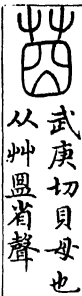 莔
武庚切貝母也
从艸𥁰省聲